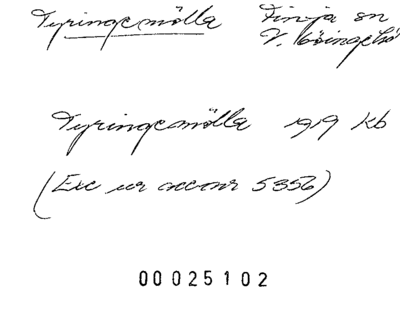 Tyringemölla Finja sn
V. Göinge hd
Tyringemölla 1919 Kb
(Exc ur accnr 5356)
00025102